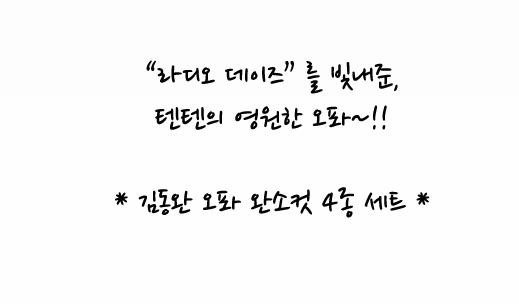 “라디오 데이즈” 를 빛내준,
텐텐의 영원한 오퐈~!!
* 김동완 오퐈 완소컷 4종 세트 *